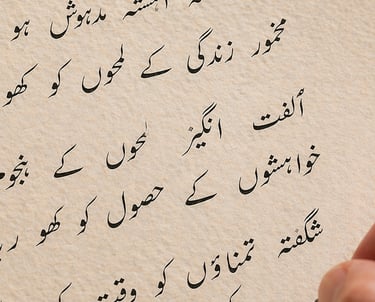 مدہوش ہو
مخمور زندگی کے لمحوں کو کھو
ألفت انگیز لمحوں کے ہجوم
خواہشوں کے حصول کو کھو
شگفتہ تمناؤں کو وقت